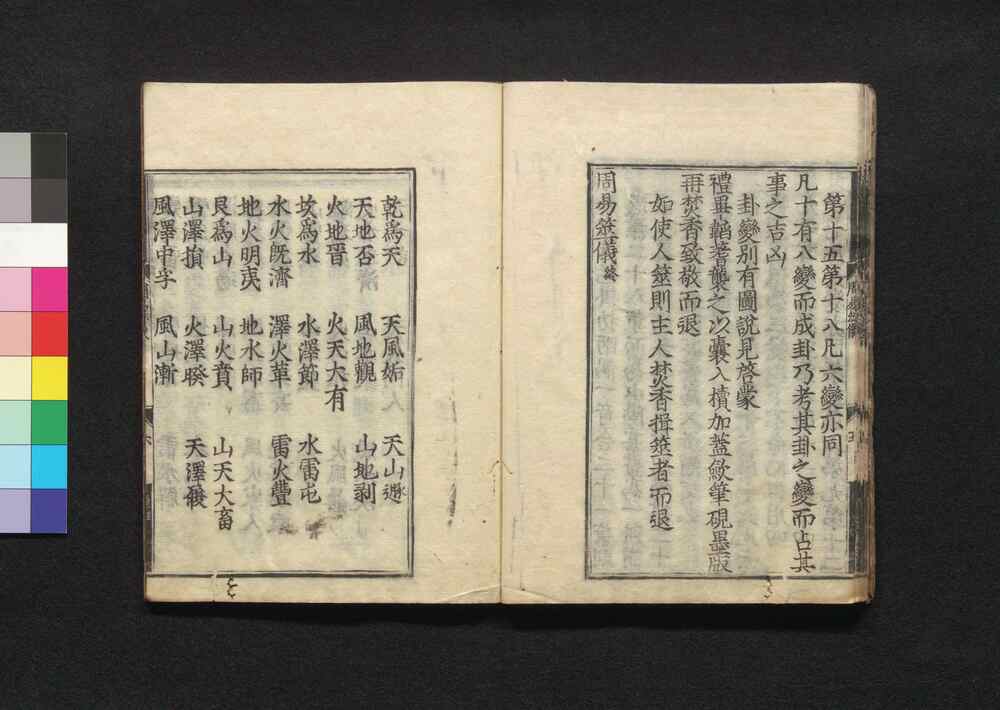 第十五第十八凡六變亦同
凡十有八變而成卦乃考其卦之變而占其
事之吉凶
卦變別有圖說見啓蒙
禮畢韜蓍襲之以囊入櫝加蓋斂筆硯墨版
再焚香致敬而退
如使人筮則主人焚香揖筮者而退
周易筮儀終
乾爲天 天風姤 天山遯
天地否 風地觀 山地剥
火地晉 火天大有
坎爲水 水澤節 水雷屯
水火旣濟 澤火革 雷火豐
地火明夷 地水師
艮爲山 山火賁 山天大畜
山澤損 火澤睽 天澤履
風澤中孚 風山漸